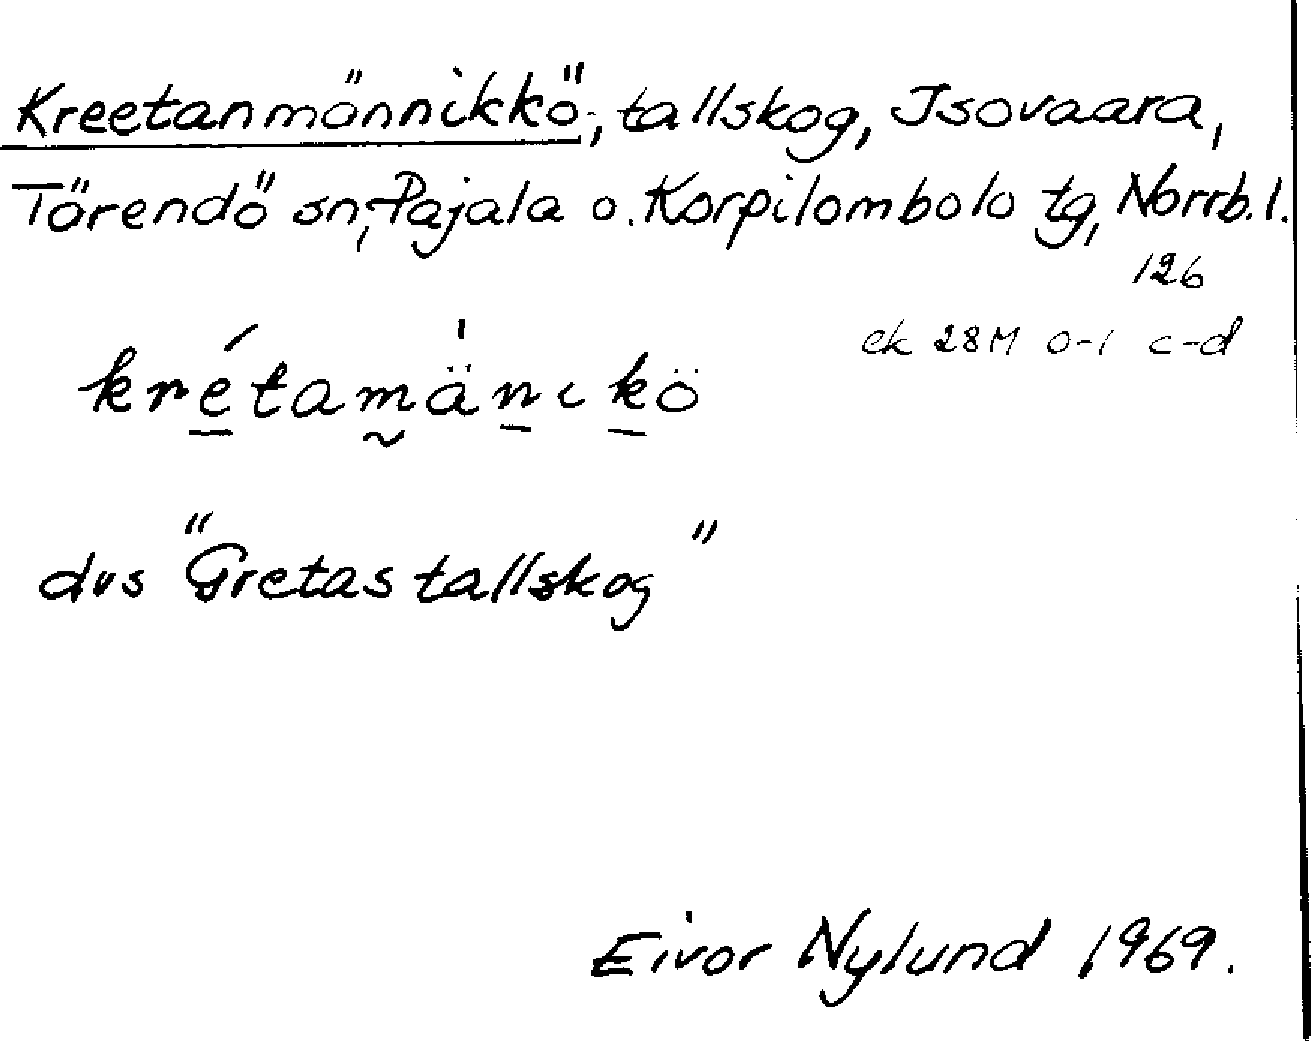 Kreetanmännikkö, tallskog, Isovaara,
Tärendö sn, Pajala o. Korpilombolo tg, Norrb. l.
126
ek 28M 0-1 c-d
krétamänikö
dvs "Gretas tallskog"
Eivor Nylund 1969.